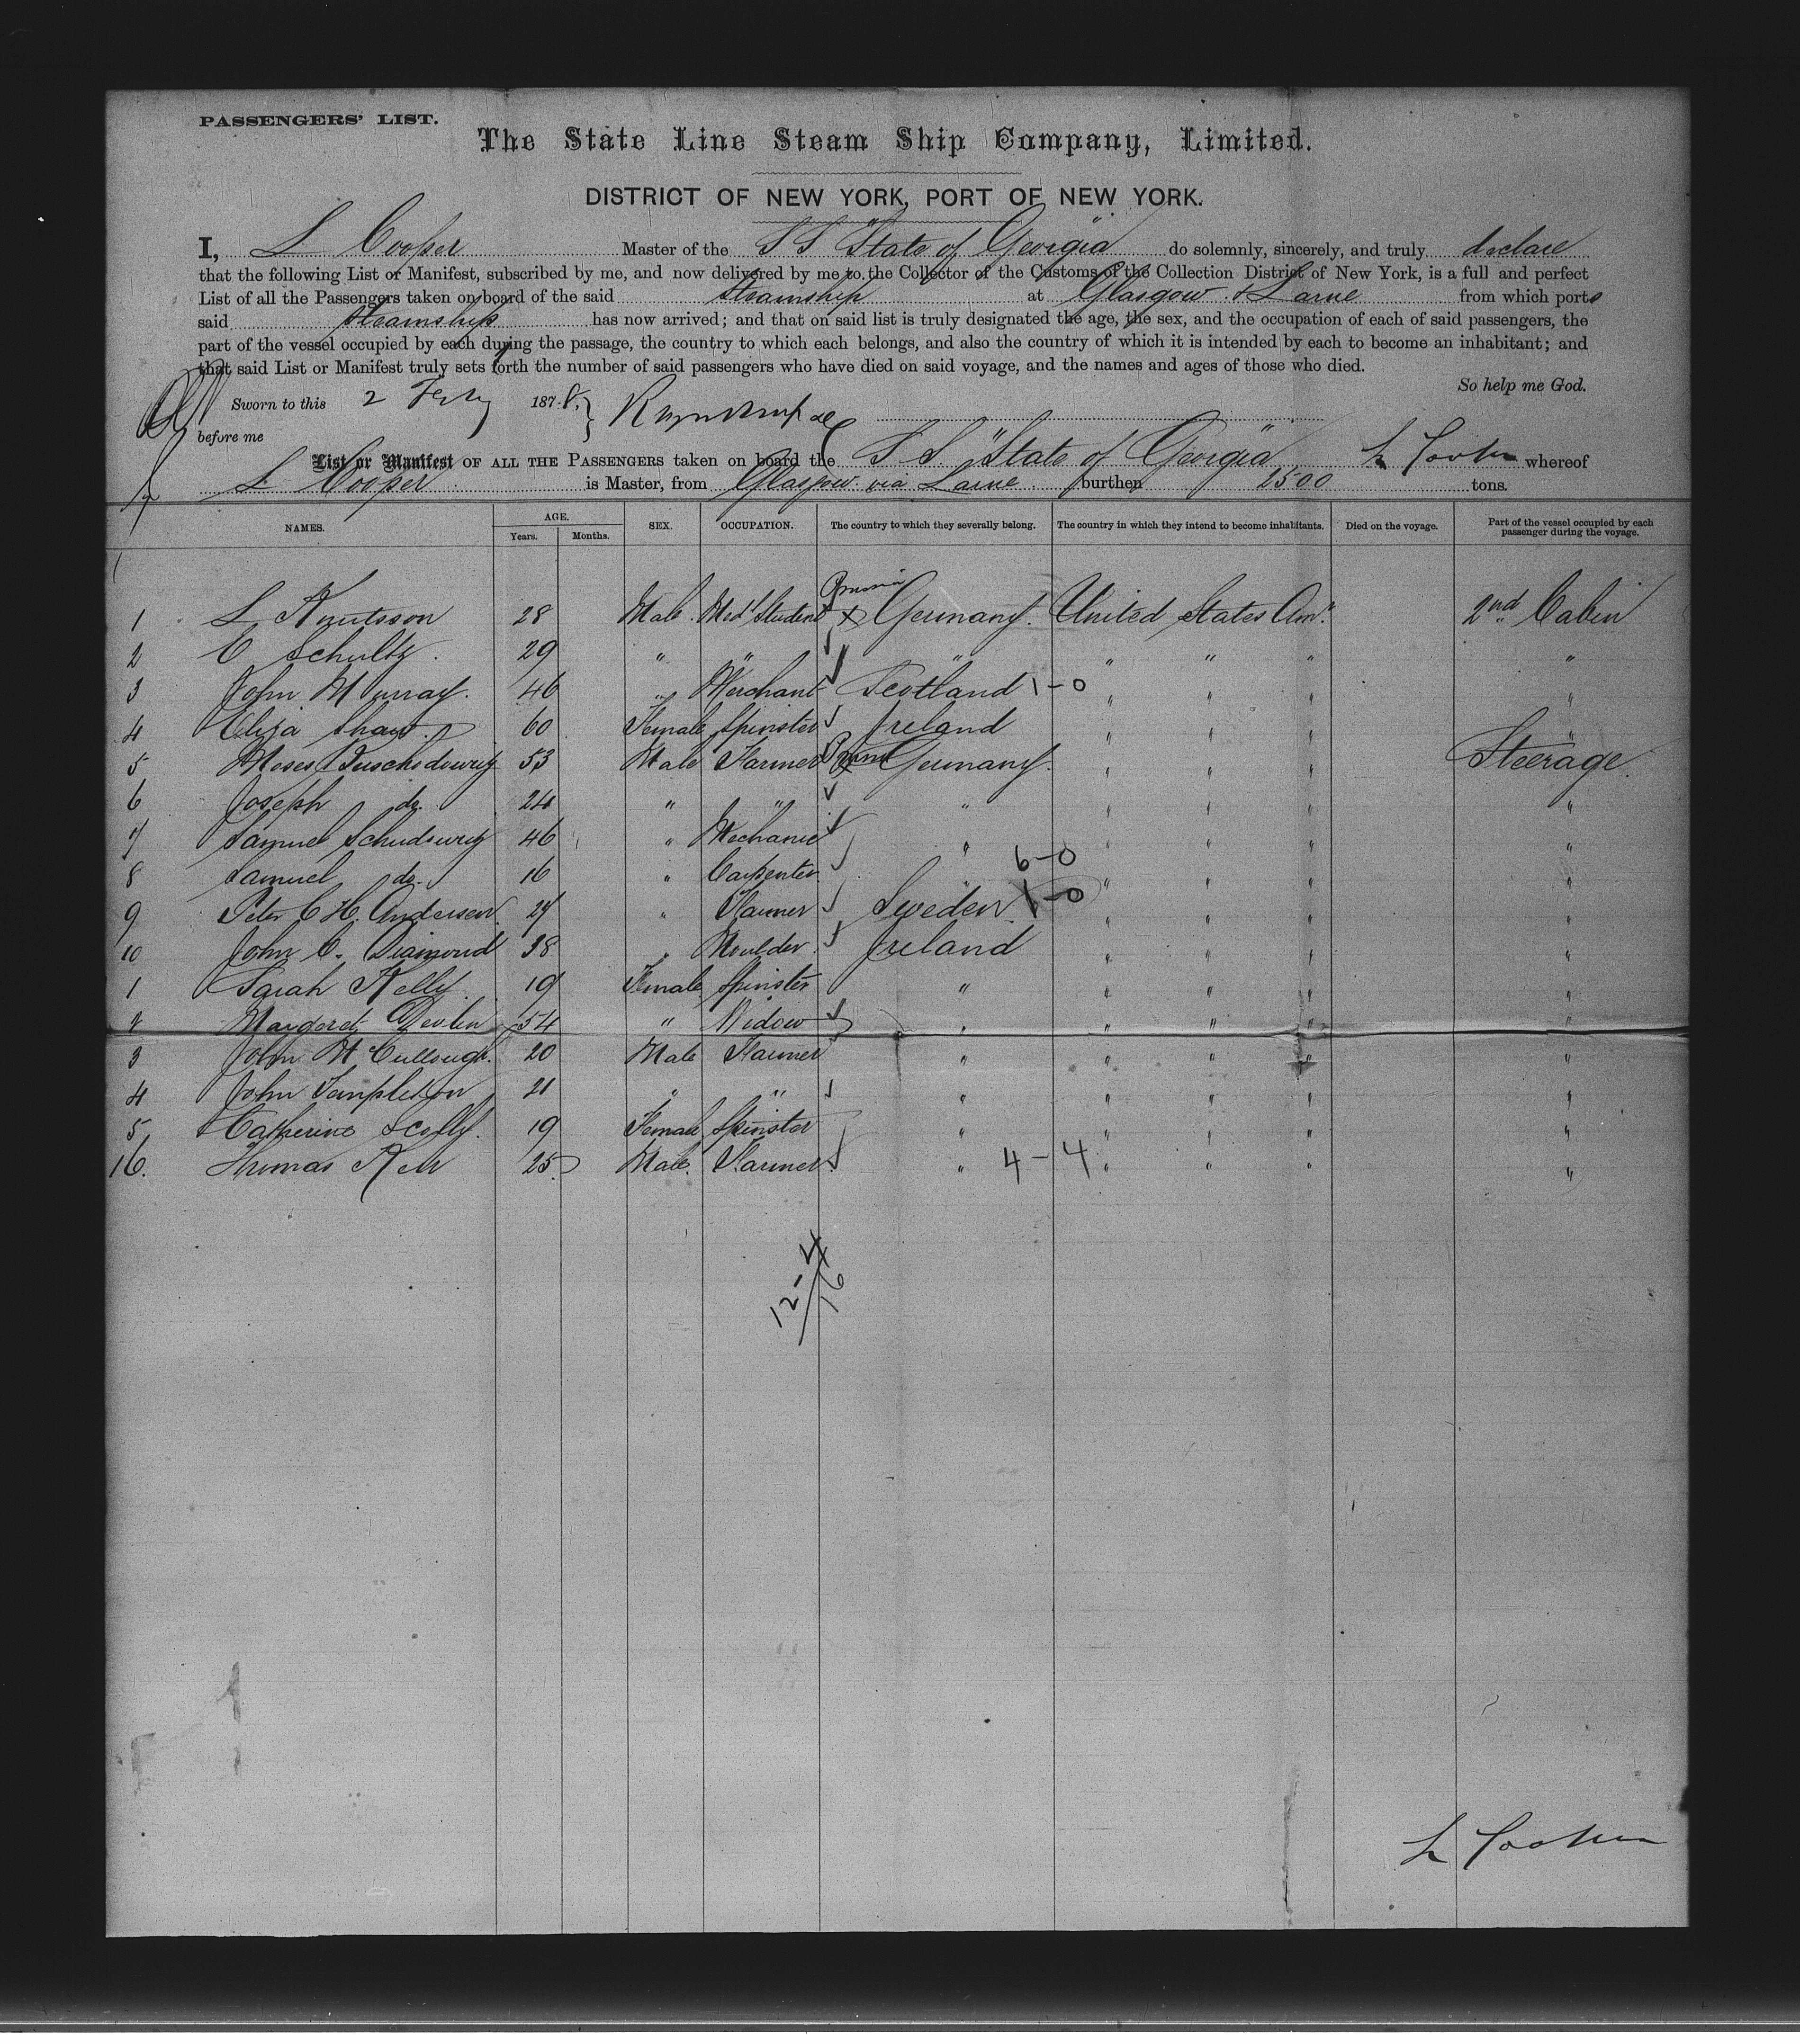 PASSENGERS' LIST.
The State Line Steam Ship Company, Limited.
DISTRICT OF NEW YORK, PORT OF NEW YORK.
I, L Cooper Master of the S S "State of Georgia" do solemnly, sincerely, and truly declare
that the following List or Manifest, subscribed by me, and now delivered by me to the Collector of the Customs of the Collection District of New York, is a full and perfect
List of all the Passengers taken on board of the said Steamship at Glasgow & Larne from which ports
said steamship has now arrived; and that on said list is truly designated the age, the sex, and the occupation of each of said passengers, the
part of the vessel occupied by each during the passage, the country to which each belongs, and also the country of which it is intended by each to become an inhabitant; and
that said List or Manifest truly sets forth the number of said passengers who have died on said voyage, and the names and ages of those who died.
So help me God.
Sworn to this 2 Feby 1878,
before me
List or Manifest OF ALL THE PASSENGERS taken on board the S S "State of Georgia" L Cooper whereof
L Cooper is Master, from Glasgow via Larne burthen 2500 tons.
NAMES. AGE. Years. Months. SEX. OCCUPATION. The country to which they severally belong. The country in which they intend to become inhabitants. Died on the voyage. Part of the vessel occupied by each passenger during the voyage.
Prussia
1 L Knutsson 28 Male Med Student x Germany. United States Am. 2nd Cabin
2 C Schultz. 29 " " " " " " "
3 John Murray. 46 " Merchant Scotland 1-0 " " " "
4 Eliza Shaw 60 Female Spinster Ireland " " " "
5 Moses 53 Male Farmer Germany. " " " Steerage.
6 Joseph do. 24 " " " " " " "
7 Samuel 46 " Mechanic " " " " "
8 Samuel do. 16 " Carpenter 6-0 " " " "
9 Peter C H. Andersen 27 " Farmer Sweden. 1-0 " " " "
10 John C. Diamond 38 " Moulder Ireland " " " "
1 Sarah Kelly 19 Female Spinster " " " " "
2 Margaret Devlin 54 " Widow " " " " "
3 John McCullough. 20 Male Farmer " " " " "
4 John Templeton 21 " " " " " " "
5 Catherine Scally. 19 Female Spinster " " " " "
16. Thomas Kerr 25 Male. Farmer. " 4-4 " " " "
12-4
16
L Cooper